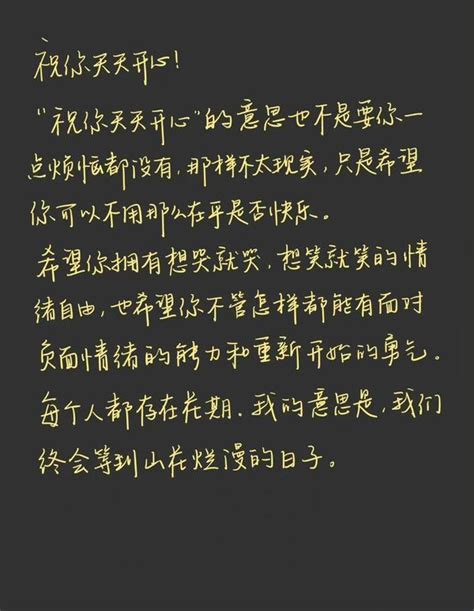 祝你天天开心!
“祝你天天开心”的意思也不是要你一
点烦恼都没有,那样不太现实,只是希望
你可以不用那么在乎是否快乐。
希望你拥有想哭就哭,想笑就笑的情
绪自由,也希望你不管怎样都能有面对
负面情绪的能力和重新开始的勇气。
每个人都存在花期.我的意思是,我们
终会等到山花烂漫的日子。